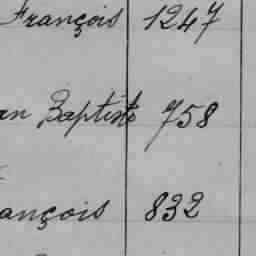 François 1247
an Baptiste 758
ançois 832